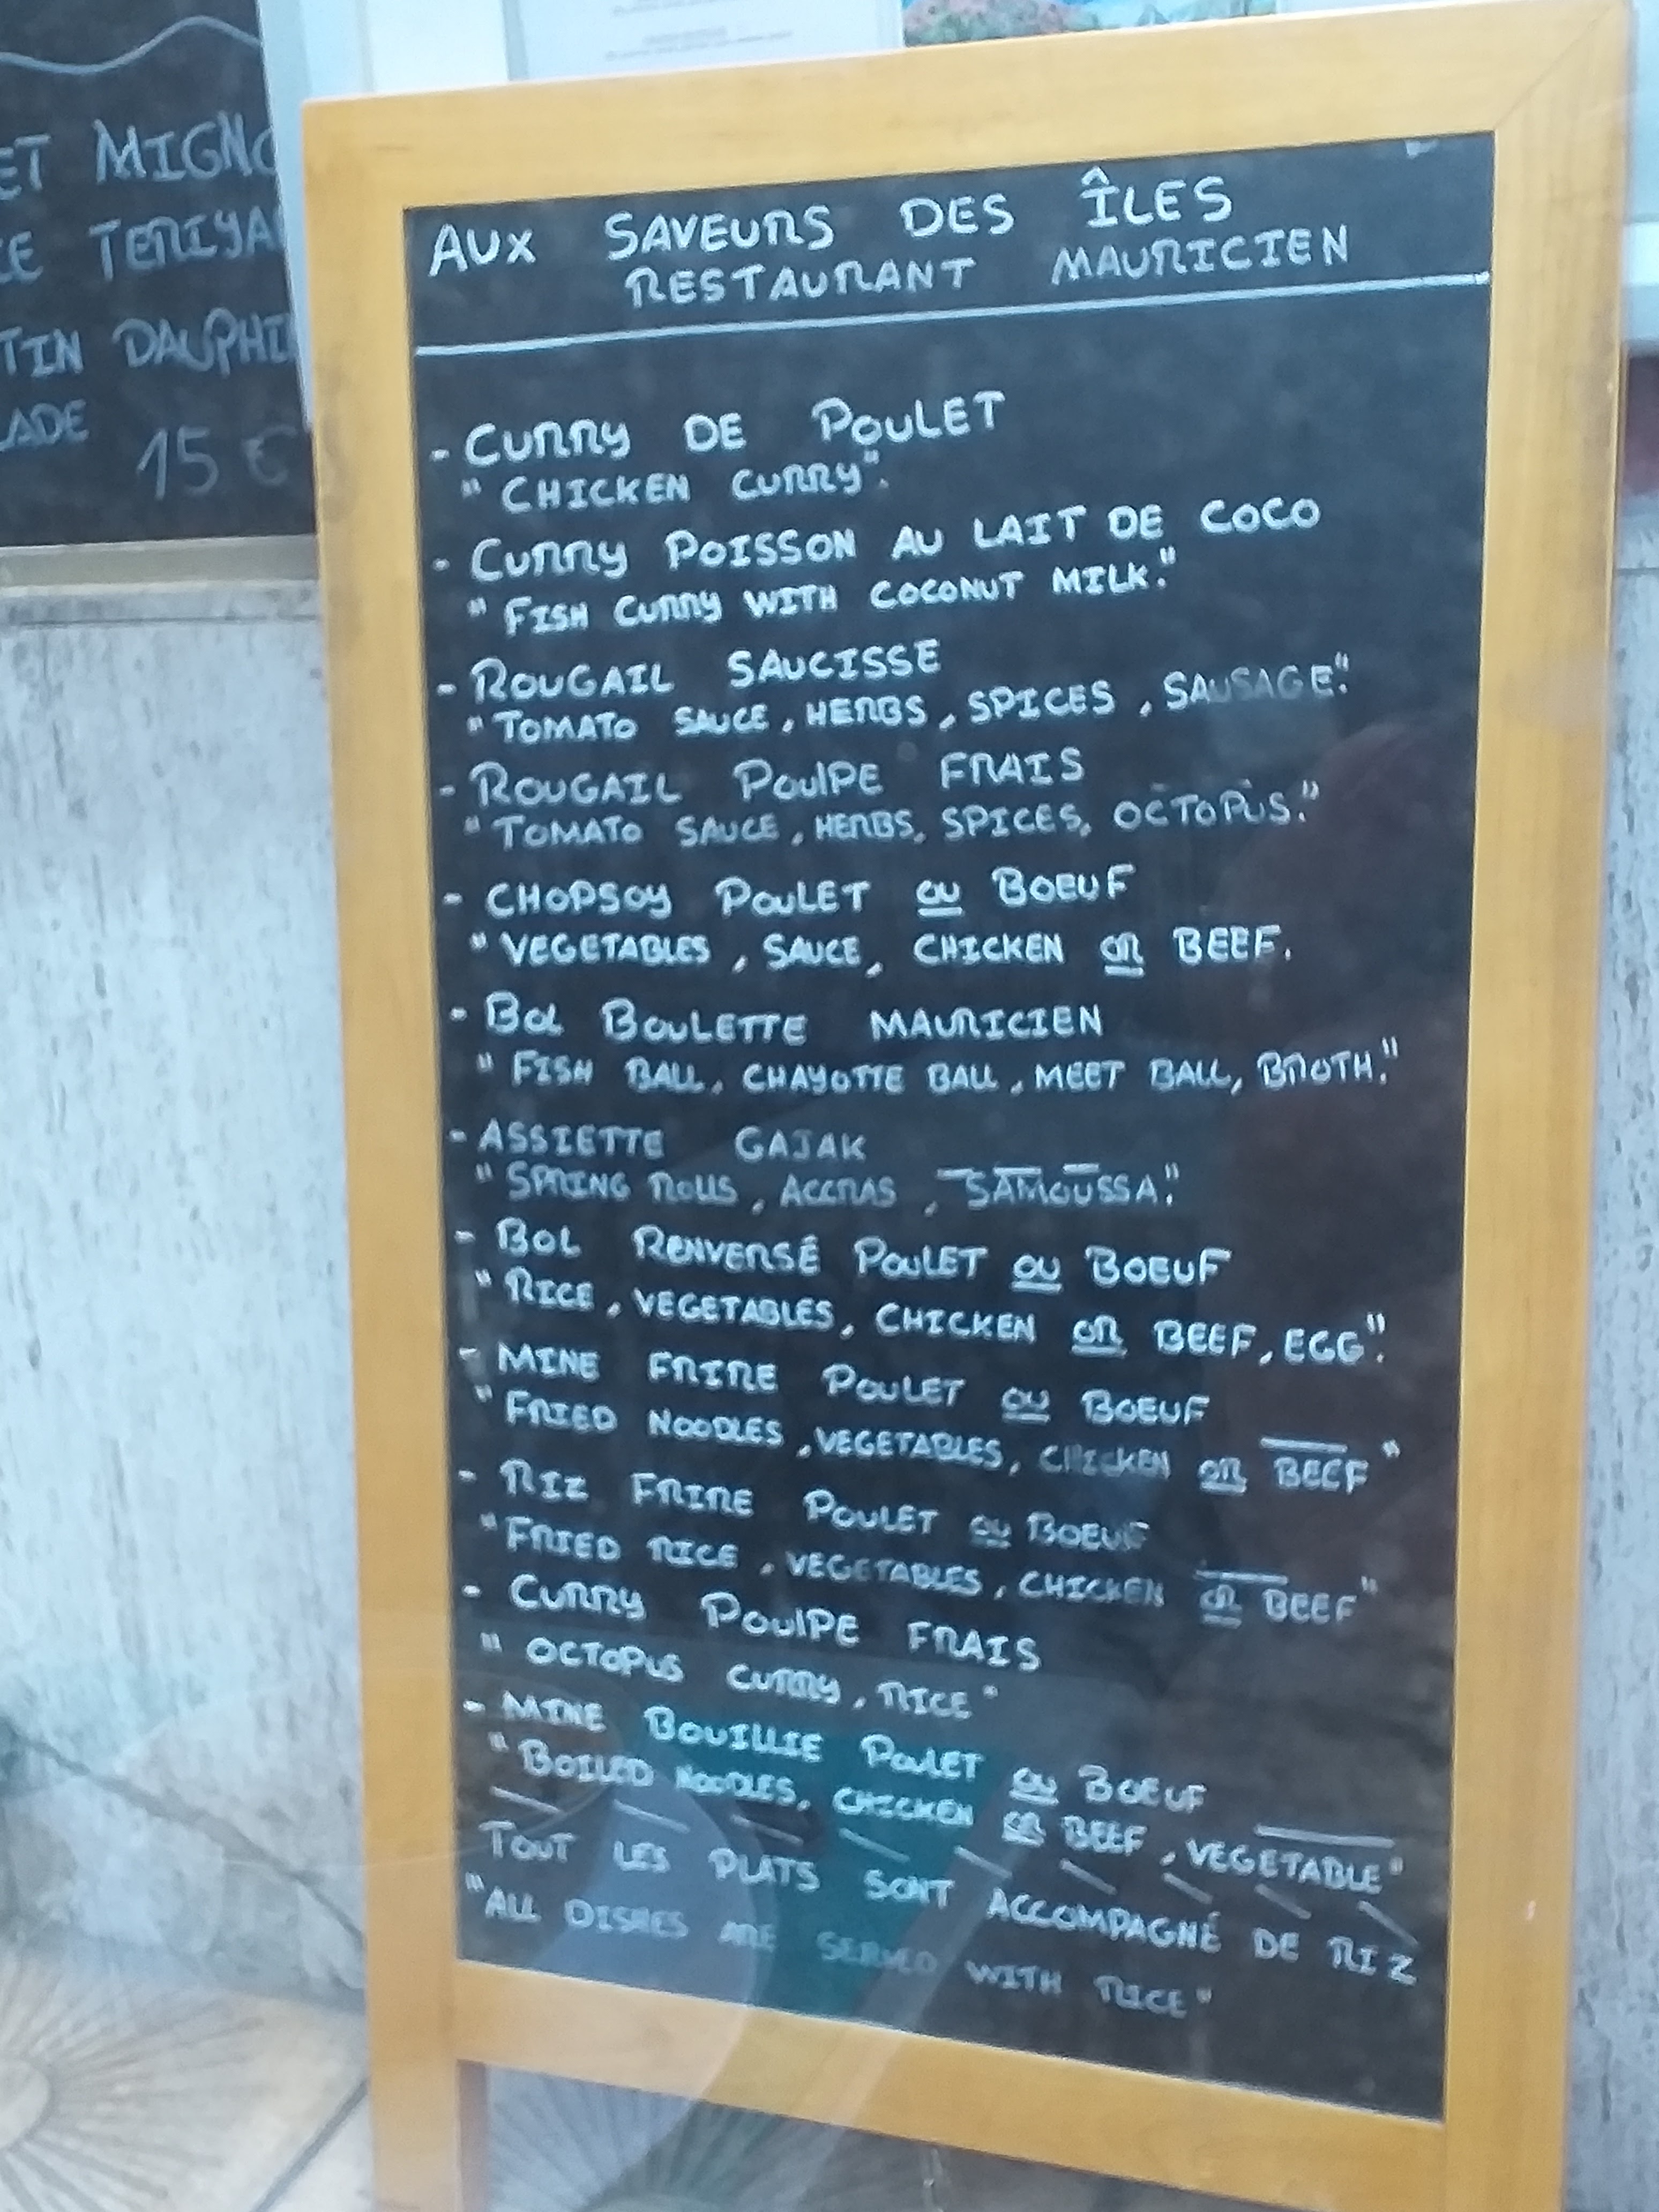 ET MIGNO
CE TERIYA
TIN DAUPHI
LADE
15 €
AUX SAVEURS DES ÎLES
RESTAURANT MAURICIEN
- CURRY DE POULET
" CHICKEN CURRY".
- CURRY POISSON AU LAIT DE COCO
" FISH CURRY WITH COCONUT MILK."
- ROUGAIL SAUCISSE
"TOMATO SAUCE, HERBS, SPICES, SAUSAGE."
- ROUGAIL POUlPE FRAIS
"TOMATO SAUCE, HERBS, SPICES, OCTOPUS."
- CHOPSOY POULET OU BOEUF
" VEGETABLES, SAUCE, CHICKEN OR BEEF.
- BOL BOULETTE MAURICIEN
" FISH BALL, CHAYOTTE BALL, MEET BALL, BROTH."
- ASSIETTE GAJAK
" SPRING ROLLS, ACCRAS, SAMOUSSA."
- BOL RENVERSÉ POULET OU BOEUF
" RICE, VEGETABLES, CHICKEN OR BEEF, EGG".
- MINE FRIRE POULET OU BOEUF
" FRIED NOODLES, VEGETABLES, CHICKEN OR BEEF"
- RIZ FRIRE POULET OU BOEUF
"FRIED RICE, VEGETABLES, CHICKEN OR BEEF"
- CURRY POUlPE FRAIS
" OCTOPUS CURRY, RICE"
- MINE BOUILLIE POULET OU BOEUF
" BOILED NOODLES, CHICKEN OR BEEF, VEGETABLE"
TOUT LES PLATS SONT ACCOMPAGNÉ DE RIZ
"ALL DISHES ARE SERVED WITH RICE"